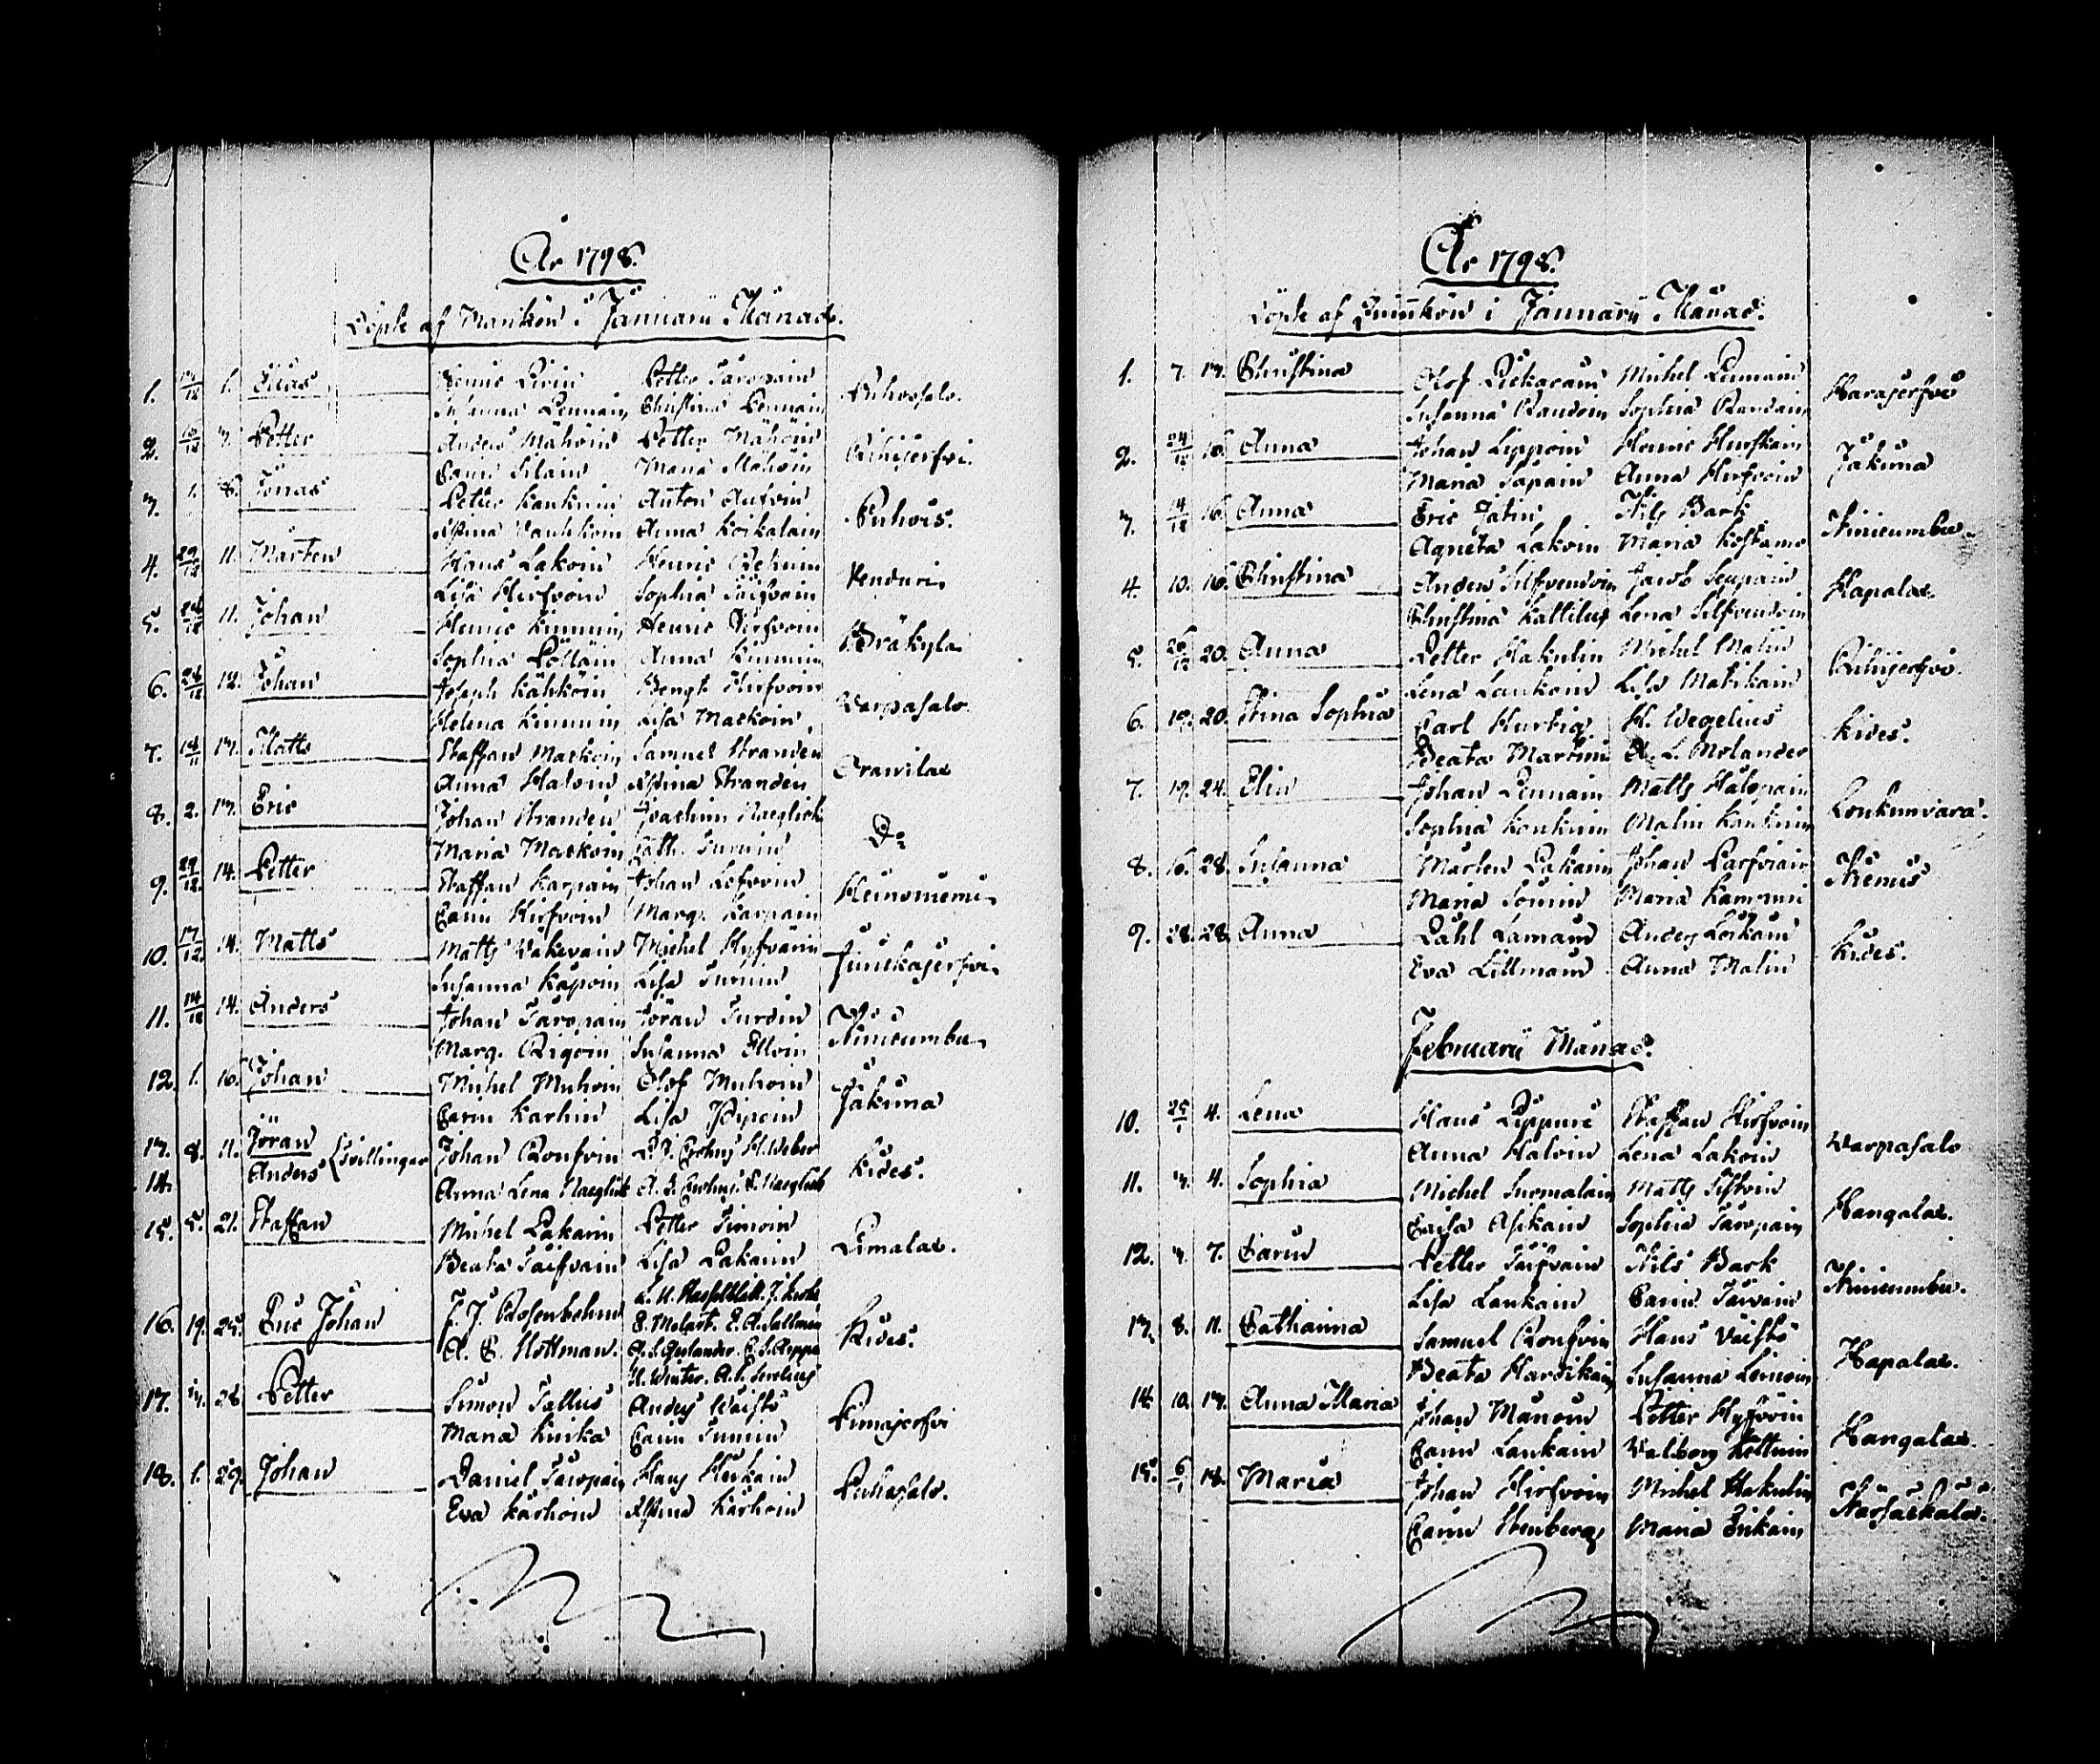 År 1798.
Döpte af Mankön i Januarii Månad.
1. 1. Elias Henric Pirin Petter Taropain Puhossalo.
Susanna Pennain Christina Pennain
2. 7. Petter Anders Mähöin Petter Mähöin Rihijerfvi.
Carin Silain Maria Mähöin
3. 1. 8. Jonas Petter Kaukuin Anton Aufvin Puhois.
Stina Vankkoin Anna Koikalain
4. 29/12 11. Mårten Hans Lakoin Henric Rehnin Venduri
Lisa Hirfvoin Sophia Päifväin
5. 11. Johan Henric Kinnuin Henric Hirfvoin Bräkylä
Sophia Pölläin Anna Kinnuin
6. 12. Johan Joseph Kähköin Bengt Hirfvoin Varpasalo
Helena Kinnuin Lisa Maekoin
7. 13. Matts Staffan Maekoin Samuel Stranden Orawilax
Anna Haloin Stina Stranden
8. 2. 13. Eric Johan Stranden Joachim Naeglick Do
Maria Maekoin Cath. Turuin
9. 29/12. 14. Petter Staffan Karpain Johan Lefvoin Heinoniemi
Carin Hirfvoin Marg. Karpain
10. 17/12. 14. Matts Matts Väkeväin Michel Hyfvärin Juurikajerfvi
Susanna Kapoin Lisa Turuin
11. 14/12 14. Anders Johan Taropain Jöran Turoin Niinicumbu
Marg. Rigoin Susanna Elloin
12. 1. 16. Johan Michel Muhoin Olof Muhoin Jakuna
Carin Karhin Lisa Piipoin
13. 8. 11. Jöran Johan Ronfvin H. Weber Kides.
14. Anders } Tvillingar Anna Lena Naeglick
15. 5. 21. Staffan Michel Pakarin Petter Timoin Pimalax.
Beata Päifväin Lisa Pakarin
L. U. Hasselblatt. J.
16. 19. 25. Eric Johan F. J. Rosenbohm E. Molart. E. A. Sallmén Kides.
A. C. Hottman.
U. Winter. A. C.
17. 28. Petter Simon Tallus Anders Väistö Piimäjerfvi
Maria Kinka Carin Turuin
18. 1. 29. Johan Daniel Taropain Hans Heikain Puhossalo.
Eva Karhoin Stina Karhoin
År 1798.
Döpte af Quinkön i Januarii Månad.
1. 7. 13. Christina Olof Piekarain Michel Piimain Harajerfvi
Susanna Raudoin Sophia Raudain
2. 24/12 16. Anna Johan Lippoin Henric Hurskain Jakuna
Maria Sapain Anna Hirfvoin
3. 14/12 16. Anna Eric Jatin Nils Bark Niinicumbu
Agneta Lakoin Maria Kostamo
4. 10. 16. Christina Anders Silfvendoin Jacob Seupain Hapalax.
Christina Kallitus Lena Silfvendoin
5. 26/12 20. Anna Petter Hakulin Michel Malin Rihijerfvi.
Lena Laukain Lisa Matikain
6. 19. 20. Stina Sophia Carl Hurtig H. Wegelius Kides.
Beata Martini A. L. Molander
7. 19. 24. Elin Johan Pennain Matts Halopain Loukunvara.
Sophia Kaukuin Malin Kaukuin
8. 16. 28. Susanna Mårten Pakarin Johan Parfviain Niemis
Maria Souin Maria Kammui
9. 28. 28. Anna Påhl Lamain Anders Löikain Kides.
Eva Lillman Anna Malin
Februarii Månad.
10. 25/1 4. Lena Hans Lippuri Staffan Hirfvoin Varpasalo
Anna Haloin Lena Lakoin
11. 3. 4. Sophia Michel Suomalain Matts Silfvoin Kangalax.
Caisa Asikain Sophia Taropain
12. 3. 7. Carin Petter Päifväin Nils Bark Niinicumbu.
Lisa Laukain Carin Taivain
13. 8. 11. Catharina Samuel Ronfvin Hans Väistö Hapalax.
Beata Hardikain Susanna Leinoin
14. 10. 13. Anna Maria Johan Manoin Petter Hyfvöin Kangalax.
Carin Laukain Valborg Kettuin
15. 6/1 18. Maria Johan Hirfvoin Michel Hakulin Närsäkkälä.
Carin Stenberg Maria Erikain